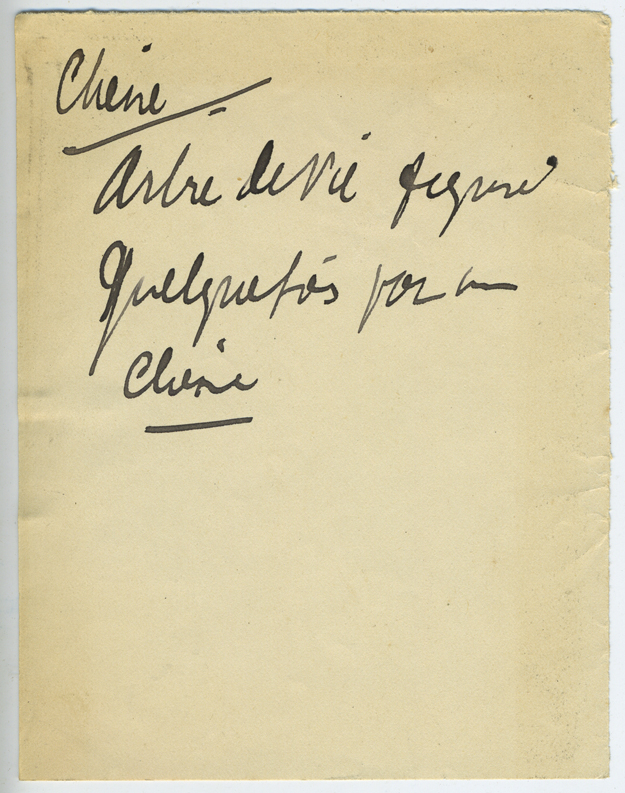 Chêne -
Arbre de Vie figuré
Quelquefois par un
Chêne